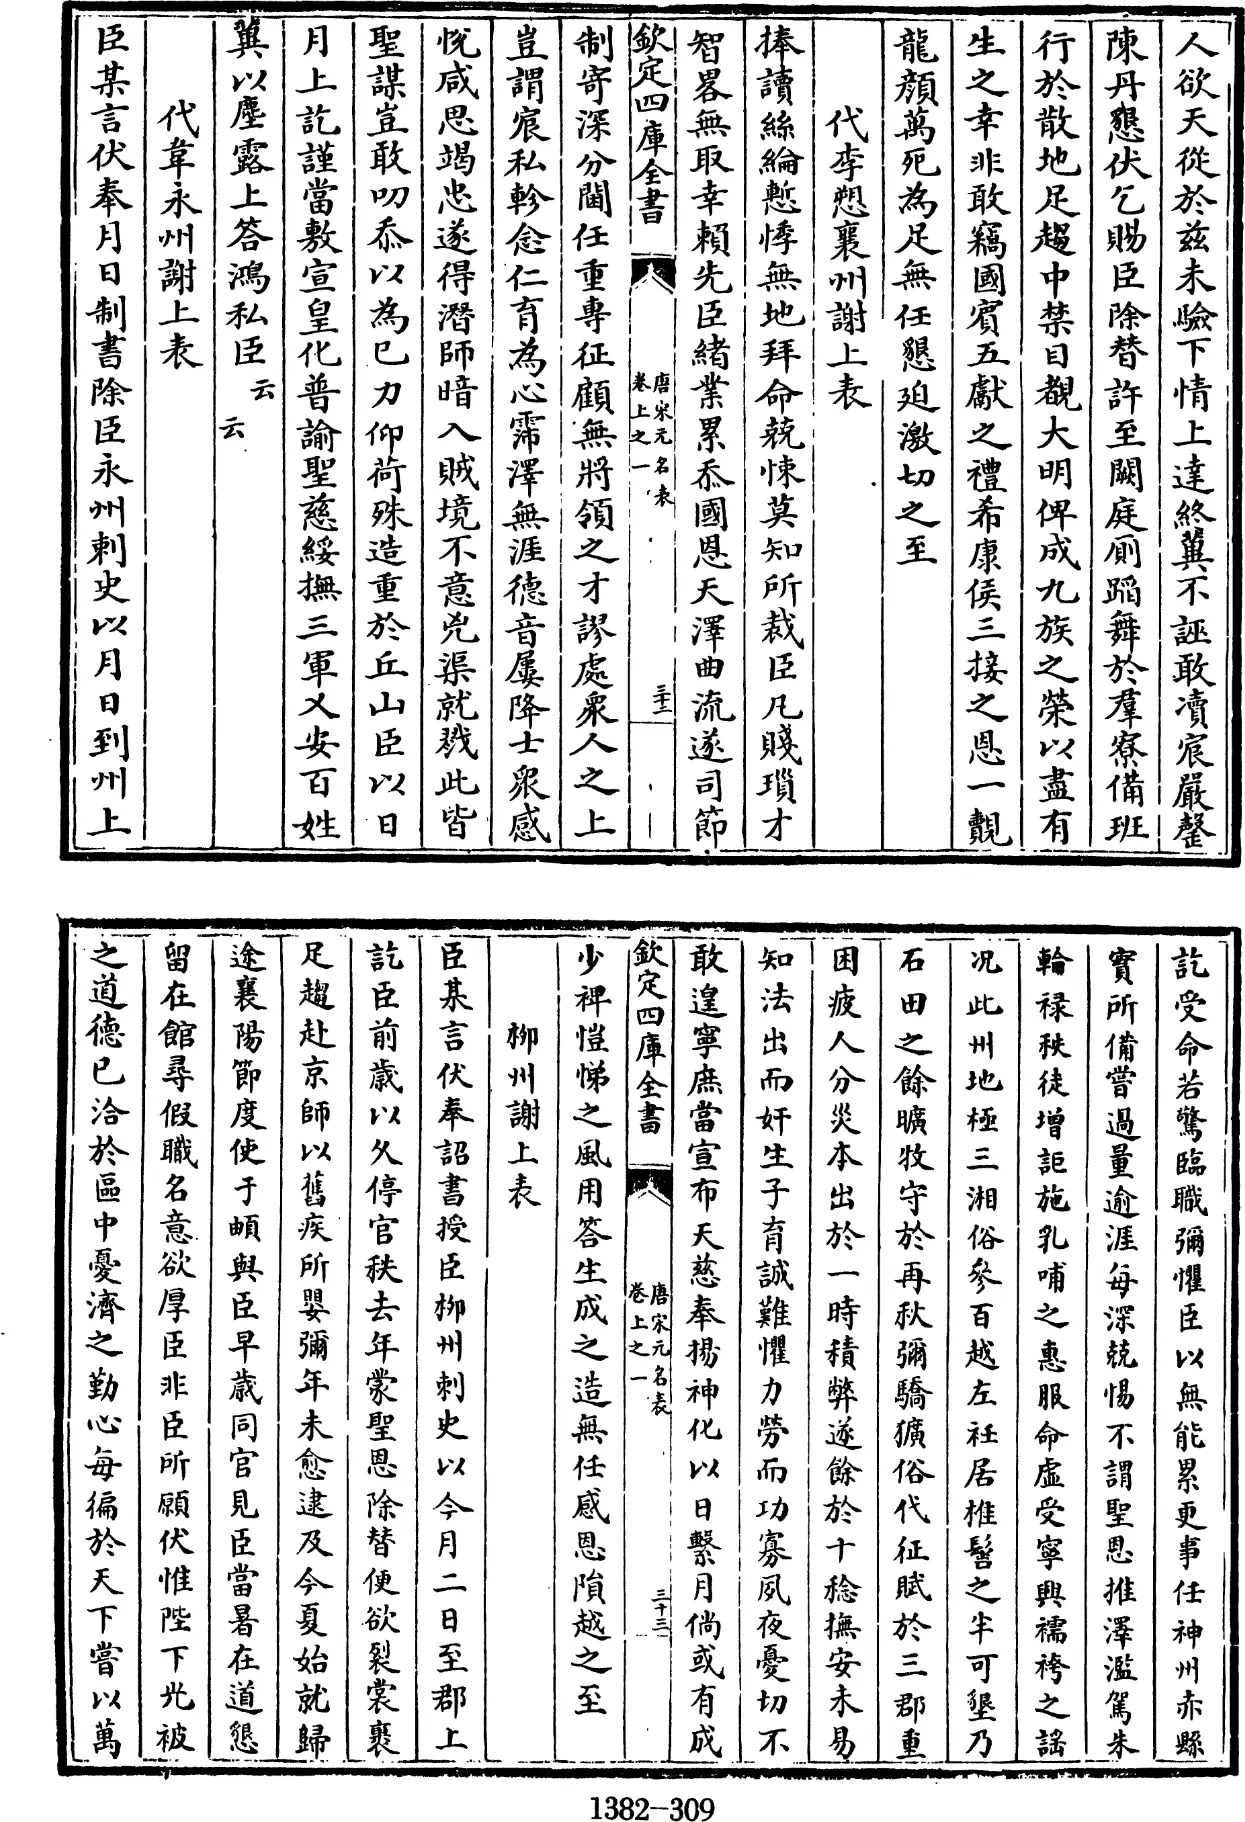 人欲天從於兹未驗下情上達終冀不誣敢凟宸嚴罄
陳丹懇伏乞賜臣除替許至闕庭厠蹈舞於羣寮備班
行於散地足趨中禁目覩大明俾成九族之榮以盡有
生之幸非敢竊國賓五獻之禮希康侯三接之恩一覿
龍顔萬死為足無任懇廹激切之至
代李愬襄州謝上表
捧讀絲綸慙悸無地拜命兢悚莫知所裁臣凡賤瑣才
智畧無取幸賴先臣緒業累忝國恩天澤曲流遂司節
欽定四庫全書
唐宋元名表
卷上之一
三十二
制寄深分閫任重専征顧無將領之才謬處衆人之上
豈謂宸私軫念仁育為心霈澤無涯德音屢降士衆感
悦咸思竭忠遂得潛師暗入賊境不意兇渠就戮此皆
聖謀豈敢叨忝以為已力仰荷殊造重於丘山臣以日
月上訖謹當敷宣皇化普諭聖慈綏撫三軍乂安百姓
冀以塵露上答鴻私臣云云
代韋永州謝上表
臣某言伏奉月日制書除臣永州刺史以月日到州上
訖受命若驚臨職彌懼臣以無能累更事任神州赤縣
實所備嘗過量逾涯每深兢惕不謂聖恩推澤濫駕朱
輪禄秩徒增詎施乳哺之惠服命虚受寧興襦袴之謡
况此州地極三湘俗參百越左衽居椎髻之半可墾乃
石田之餘曠牧守於再秋彌驕獷俗代征賦於三郡重
困疲人分災本出於一時積弊遂餘於十稔撫安未易
知法出而奸生子育誠難懼力勞而功寡夙夜憂切不
敢遑寧庶當宣布天慈奉揚神化以日繫月倘或有成
欽定四庫全書
唐宋元名表
卷上之一
三十三
少裨愷悌之風用答生成之造無任感恩隕越之至
柳州謝上表
臣某言伏奉詔書授臣柳州刺史以今月二日至郡上
訖臣前歲以久停官秩去年蒙聖恩除替便欲裂裳裹
足趨赴京師以舊疾所嬰彌年未愈逮及今夏始就歸
途襄陽節度使于頔與臣早歲同官見臣當暑在道懇
留在館尋假職名意欲厚臣非臣所願伏惟陛下光被
之道德已洽於區中憂濟之勤心每徧於天下嘗以萬
1382-309